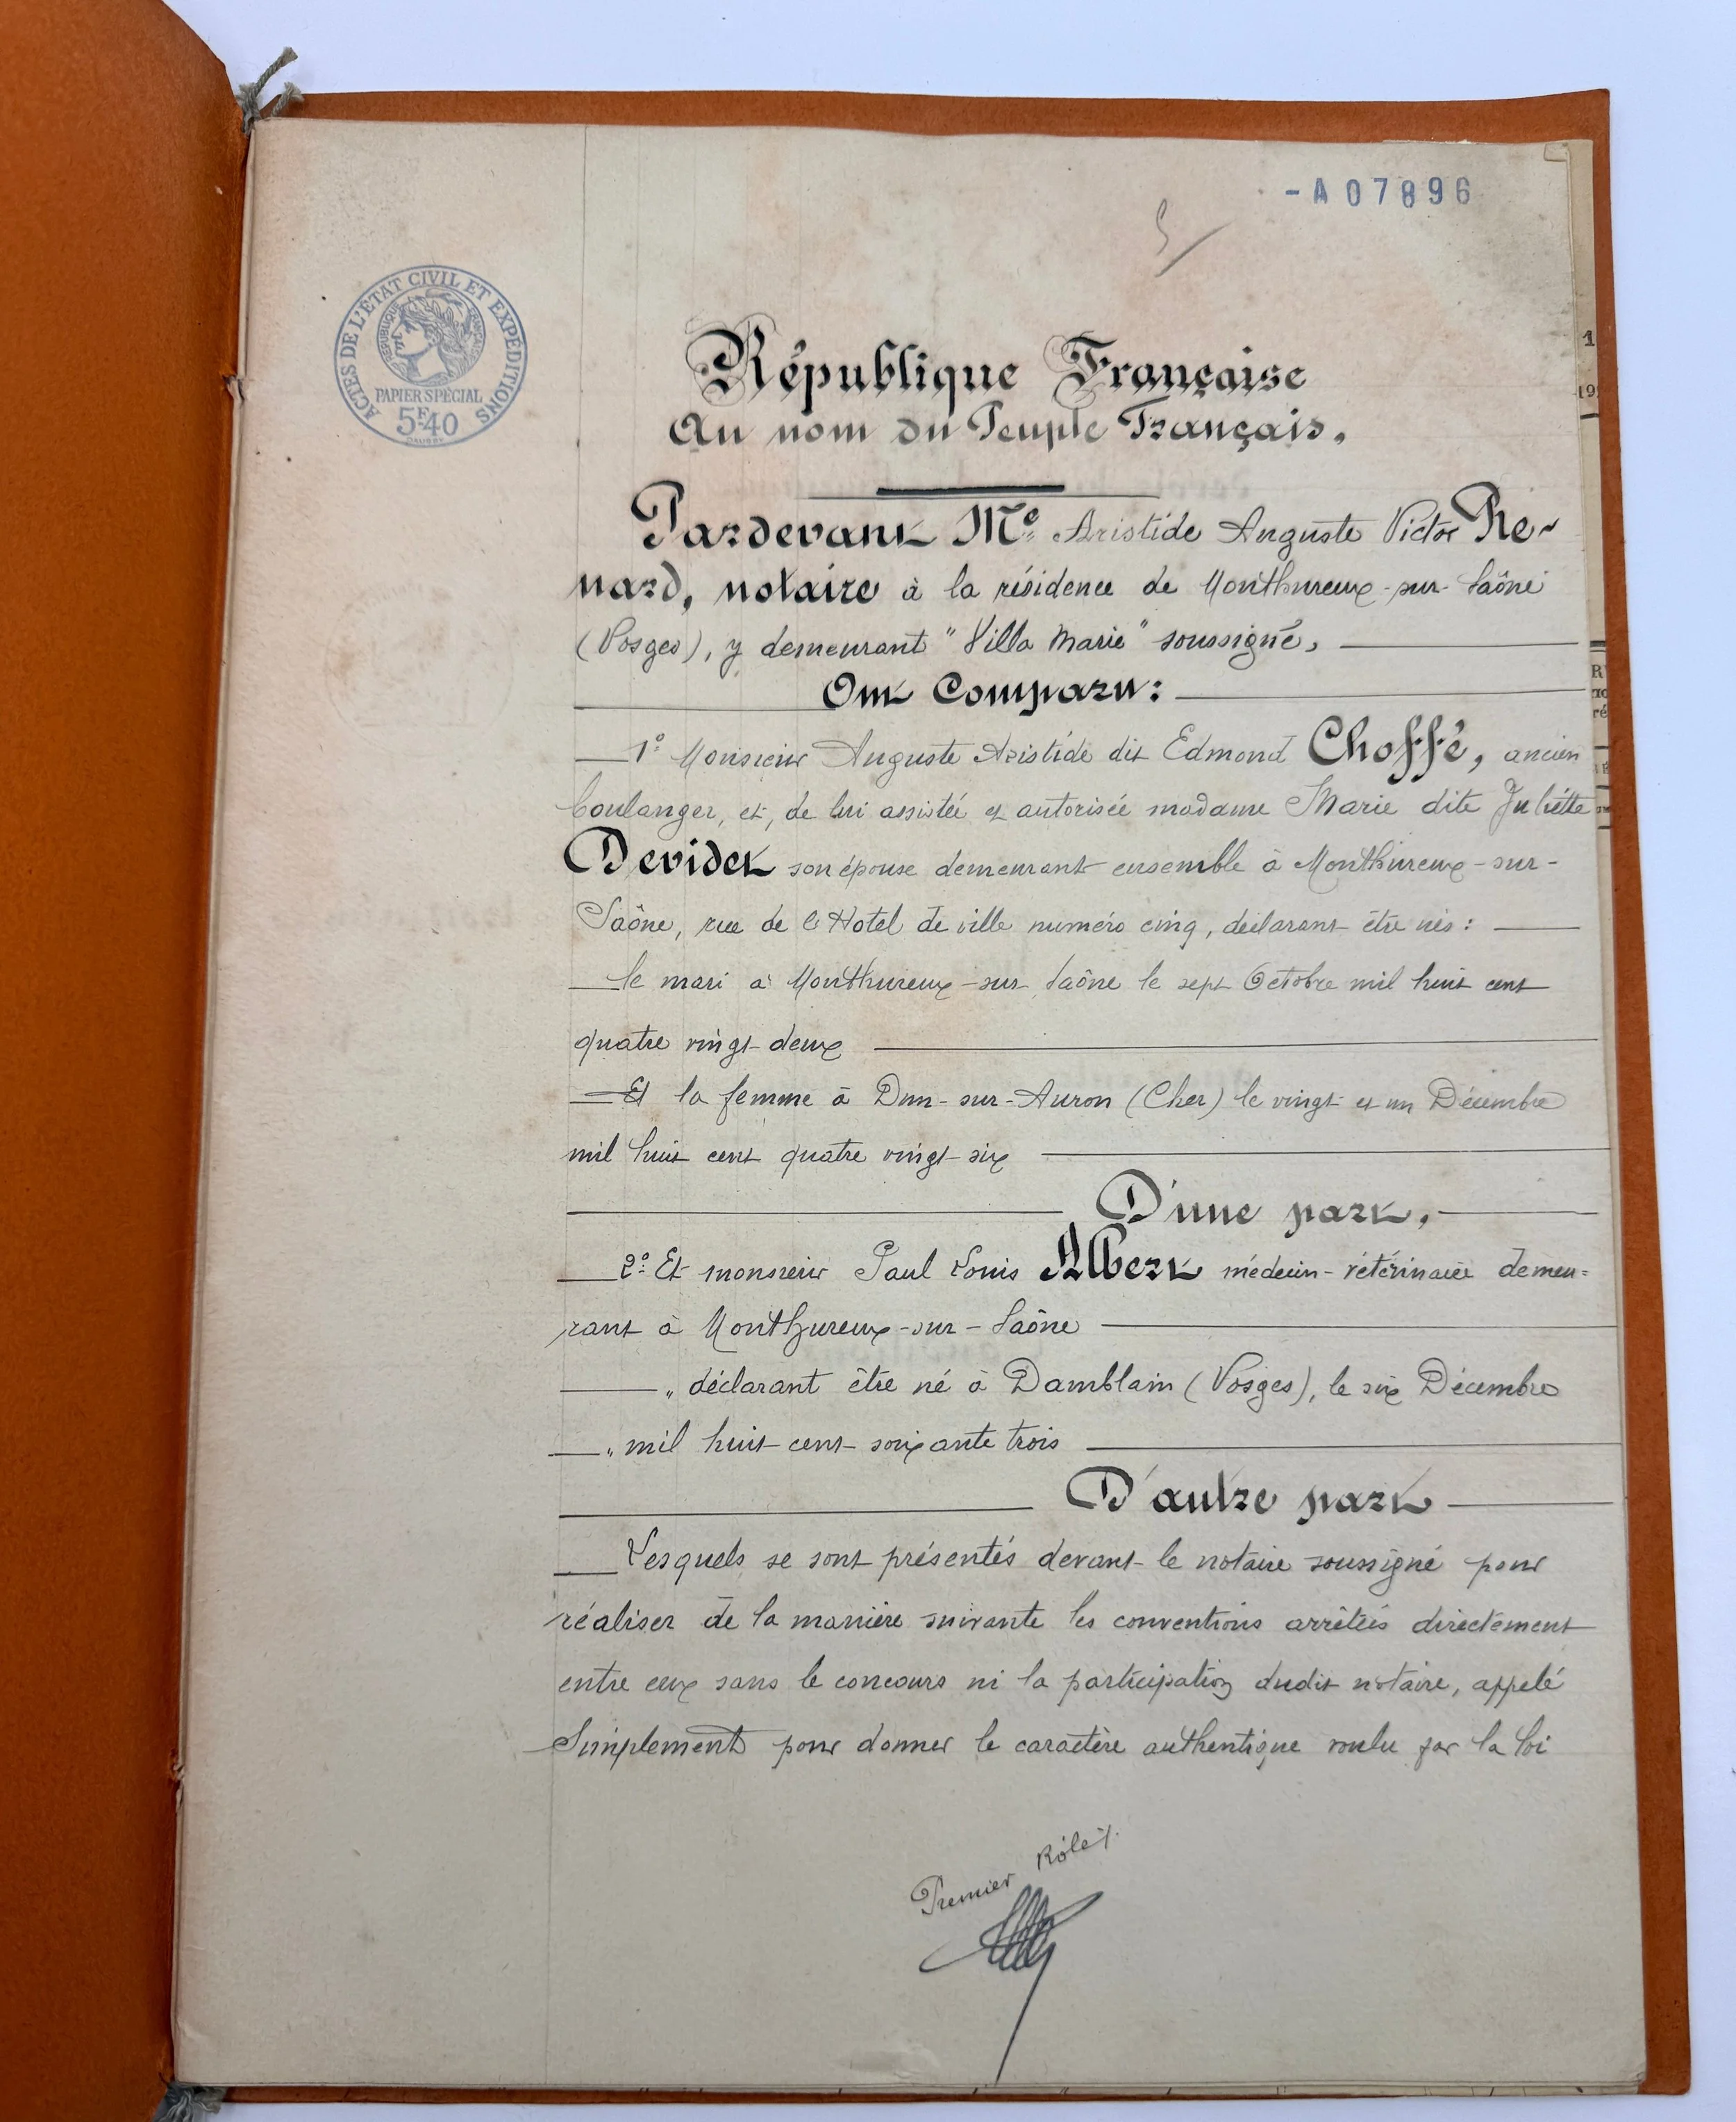 - A 07896
ACTES DE L'ÉTAT CIVIL ET EXPÉDITIONS
RÉPUBLIQUE FRANÇAISE
PAPIER SPÉCIAL
5F.40
République Française
Au nom du Peuple Français.
Pardevant Me. Aristide Auguste Victor Re-
nard, notaire à la résidence de Monthureux-sur-Saône
(Vosges), y demeurant "Villa Marie" soussigné,
Ont Comparu:
1º. Monsieur Auguste Aristide dit Edmond Choffé, ancien
boulanger, et, de lui assistée et autorisée madame Marie dite Juliette
Devidet son épouse demeurant ensemble à Monthureux-sur-
Saône, rue de l'Hotel de ville numéro cinq, déclarant être nés:
le mari à Monthureux-sur-Saône le sept Octobre mil huit cent
quatre vingt-deux
Et la femme à Dun-sur-Auron (Cher) le vingt et un Décembre
mil huit cent quatre vingt-six
D'une part,
2º. Et monsieur Paul Louis Albert médecin-vétérinaire demeu=
rant à Monthureux-sur-Saône
„ déclarant être né à Damblain (Vosges), le six Décembre
„ mil huit cent soixante trois
D'autre part
Lesquels se sont présentés devant le notaire soussigné pour
réaliser de la manière suivante les conventions arrêtées directement
entre eux sans le concours ni la participation dudit notaire, appelé
Simplement pour donner le caractère authentique voulu par la loi
Premier Rôle